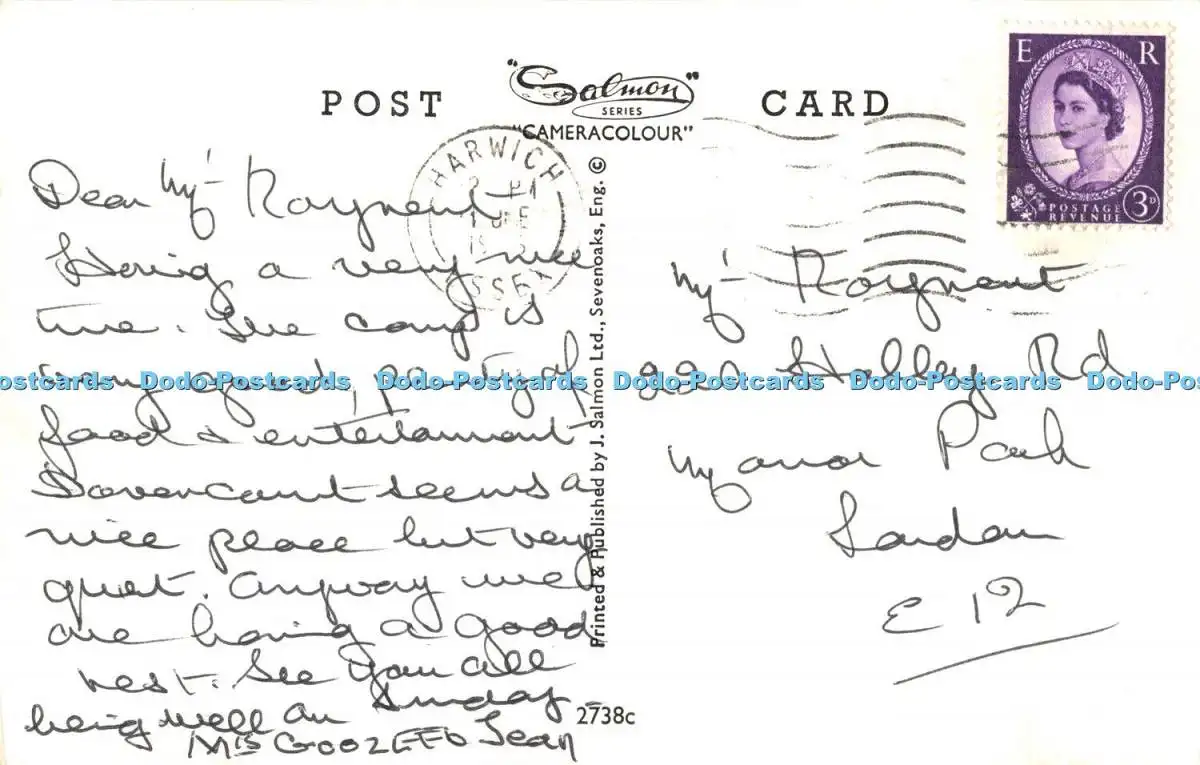 POST CARD
"Salmon"
SERIES
"CAMERACOLOUR"
E R
POSTAGE
REVENUE
3D
HARWICH
ESSEX
Dear Mrs Rayment
Having a very nice
time. The camp is
very good, plenty of
food & entertainment
Dovercourt seems a
nice place but very
quiet. Anyway we
are having a good
rest. See you all
being well on Sunday
Mrs Jean
Printed & Published by J. Salmon Ltd., Sevenoaks, Eng. ©
2738c
Mrs Rayment
Rd
Manor Park
London
E 12
Dodo-Postcards Dodo-Postcards Dodo-Postcards Dodo-Postcards Dodo-Postcards